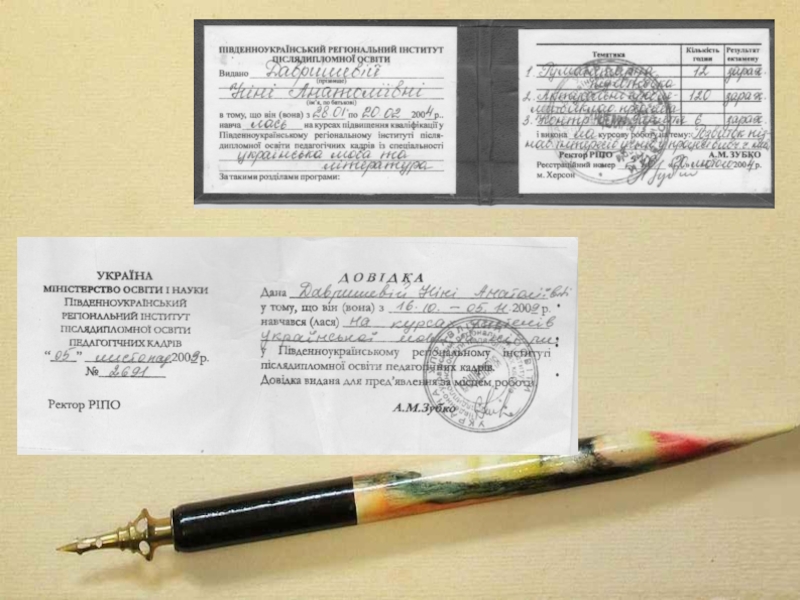 ПІВДЕННОУКРАЇНСЬКИЙ РЕГІОНАЛЬНИЙ ІНСТИТУТ
ПІСЛЯДИПЛОМНОЇ ОСВІТИ
Видано Давришевій
(прізвище)
Ніні Анатоліївні
(ім'я, по батькові)
в тому, що він (вона) з 28.01 по 20.02 2004 р.
навча лась на курсах підвищення кваліфікації у
Південноукраїнському регіональному інституті після-
дипломної освіти педагогічних кадрів із спеціальності
українська мова та
література
За такими розділами програми:
Тематика Кількість годин Результат екзамену
1. Гуманітарна підготовка 12 зарах.
2. 120 зарах.
3. 6 зарах.
і викона ла курсову роботу на тему:
Ректор РІПО А.М. ЗУБКО
Реєстраційний номер 2004 р.
м. Херсон
УКРАЇНА
МІНІСТЕРСТВО ОСВІТИ І НАУКИ
ПІВДЕННОУКРАЇНСЬКИЙ
РЕГІОНАЛЬНИЙ ІНСТИТУТ
ПІСЛЯДИПЛОМНОЇ ОСВІТИ
ПЕДАГОГІЧНИХ КАДРІВ
"05" листопад 2009 р.
№ 2691
Ректор РІПО
ДОВІДКА
Дана Давришевій Ніні Анатоліївні
у тому, що він (вона) з 16.10. – 05.11.2009 р.
навчався (лася) на курсах вчителів
української мови
у Південноукраїнському регіональному інституті
післядипломної освіти педагогічних кадрів.
Довідка видана для пред'явлення за місцем роботи.
А.М.Зубко